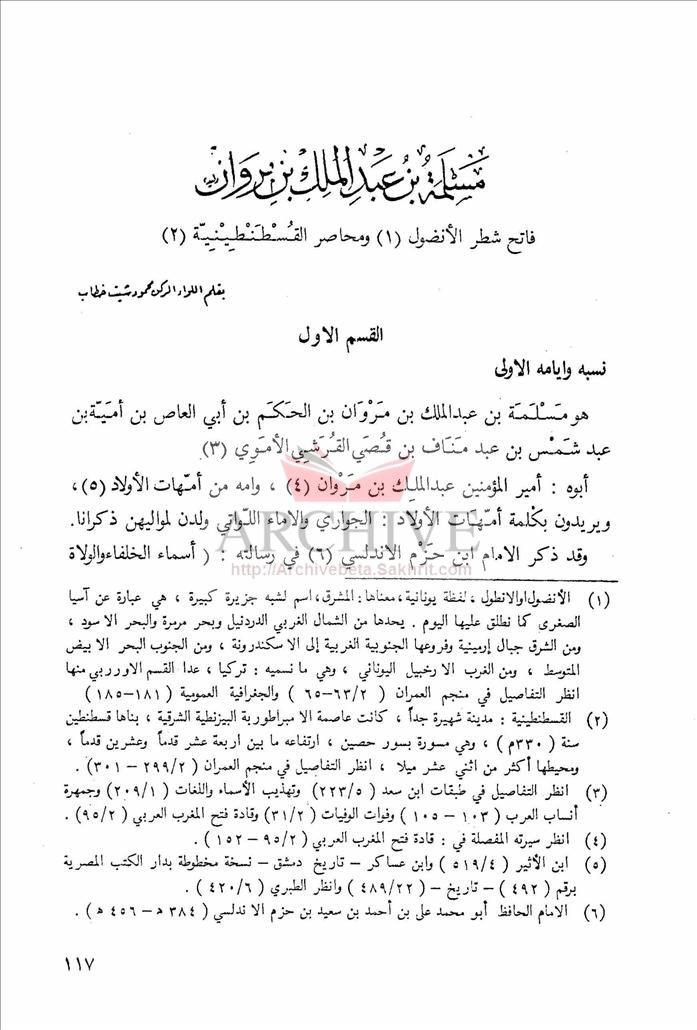 مَسْلَمَةُ بنُ عَبدِ الملِكِ بنِ مروَان
فاتح شطر الأنضول (١) ومحاصر القُسْطَنْطِيْنِيّة (٢)
بقلم اللواء الركن محمود شيت خطاب
القسم الاول
نسبه وايامه الاولى
هو مَسْلَمَة بن عبدالملك بن مَرْوَان بن الحَكَم بن أبي العاص بن أميَة بن
عبد شَمْس بن عبد مَنَاف بن قُصَي القُرَشيِ الأمَوي (٣).
أبوه : أمير المؤمنين عبدالملِك بن مَرْوان (٤) ، وامه من أمّهات الأولاد (٥)،
ويريدون بكلمة أمّهات الأولاد : الجواري والاماء اللّواتي ولدن لمواليهن ذكرانا.
وقد ذكر الامام ابن حَزْم الاندلسي (٦) في رسالته : ( أسماء الخلفاء والولاة
ARCHIVE
http://Archivebeta.Sakhrit.com
(١) الأنضول او الانطول ، لفظة يونانية ، معناها: المشرق، اسم لشبه جزيرة كبيرة ، هي عبارة عن آسيا
الصغرى كما نطلق عليها اليوم . يحدها من الشمال الغربي الدردنيل وبحر مرمرة والبحر الاسود ،
ومن الشرق جبال إرمينية وفروعها الجنوبية الغربية إلى الاسكندرونة ، ومن الجنوب البحر الابيض
المتوسط ، ومن الغرب الارخبيل اليوناني ، وهي ما نسميه : تركيا ، عدا القسم الاوربي منها
انظر التفاصيل في منجم العمران (٢/٦٣-٦٥ ) والجغرافية العمومية (١٨١-١٨٥ )
(٢) القسطنطينية : مدينة شهيرة جداً ، كانت عاصمة الامبراطورية البيزنطية الشرقية ، بناها قسطنطين
سنة ( ٣٣٠م ) ، وهي مسورة بسور حصين ، ارتفاعه ما بين اربعة عشر قدماً وعشرين قدماً ،
ومحيطها أكثر من اثني عشر ميلا ، انظر التفاصيل في منجم العمران ( ٢/٢٩٩ – ٣٠١) .
(٣) انظر التفاصيل في طبقات ابن سعد ( ٥/٢٢٣) وتهذيب الأسماء واللغات (١/٢٠٩ ) وجمهرة
أنساب العرب ( ١٠٣ – ١٠٥ ) وفوات الوفيات (٢/٣١) وقادة فتح المغرب العربي (٢/٩٥ ) .
(٤) انظر سيرته المفصلة في : قادة فتح المغرب العربي (٢/٩٥ – ١٥٢ ) .
(٥) ابن الأثير ( ٤/٥١٩ ) وابن عساكر – تاريخ دمشق – نسخة مخطوطة بدار الكتب المصرية
برقم ( ٤٩٢ ) – تاريخ – ( ٢٢/٤٨٩ ) وانظر الطبري ( ٦/٤٢٠ ) .
(٦) الامام الحافظ أبو محمد على بن أحمد بن سعيد بن حزم الاندلسي ( ٣٨٤ هـ – ٤٥٦ هـ ) .
١١٧